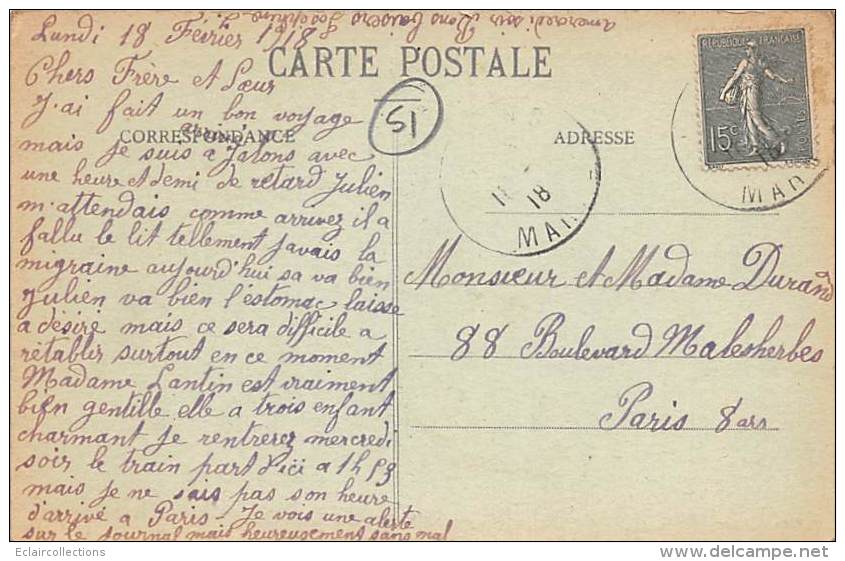 Lundi 18 Février 1918
CARTE POSTALE
Chers Frère et Sœur
J'ai fait un bon voyage
CORRESPONDANCE
mais je suis arrivé à Jalons avec
une heure et demi de retard Julien
m'attendais comme arrivez il a
fallu le lit tellement javais la
migraine aujourd'hui sa va bien
Julien va bien l'estomac laisse
a désiré mais ce sera difficile a
rétablir surtout en ce moment
Madame Lantin est vraiment
bien gentille elle a trois enfant
charmant je rentrerez mercredi
soir le train part d'içi a 1h 53
mais je ne sais pas son heure
d'arrivé a Paris - Je vois une alerte
sur le journal mais heureusement sans mal
a mercredi soir Bons baisers Joséphine
51
ADRESSE
REPUBLIQUE FRANÇAISE
15c
POSTES
18
MAR
MAR
Monsieur et Madame Durand
88 Boulevard Malesherbes
Paris 8 arr
Eclaircollections
http://eclaircollections.delcampe.net